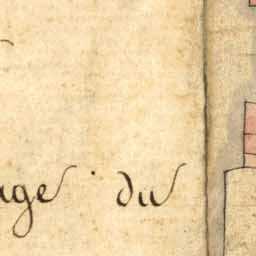 age du